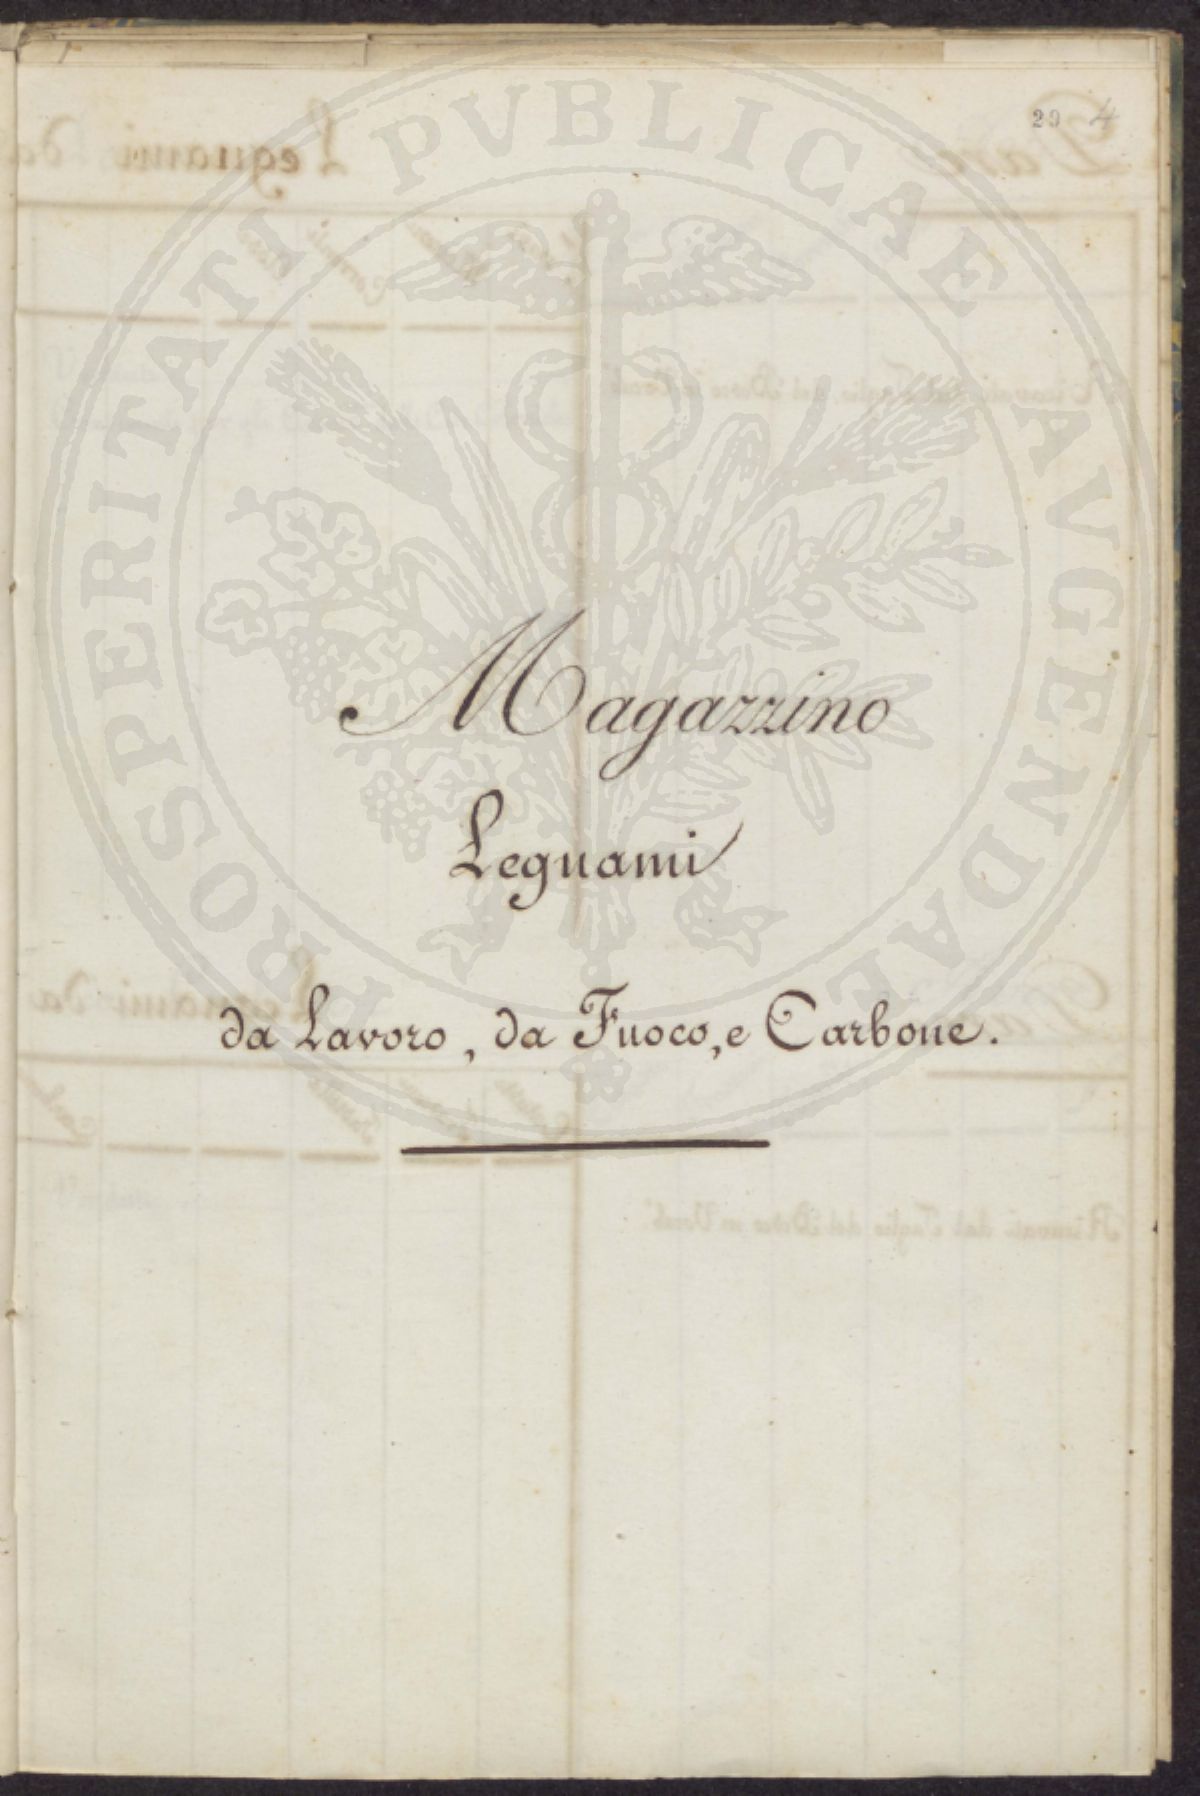 29 4
PROSPERITATI PVBLICAE AVGENDAE
Magazzino
Legnami
da Lavoro, da Fuoco, e Carbone.